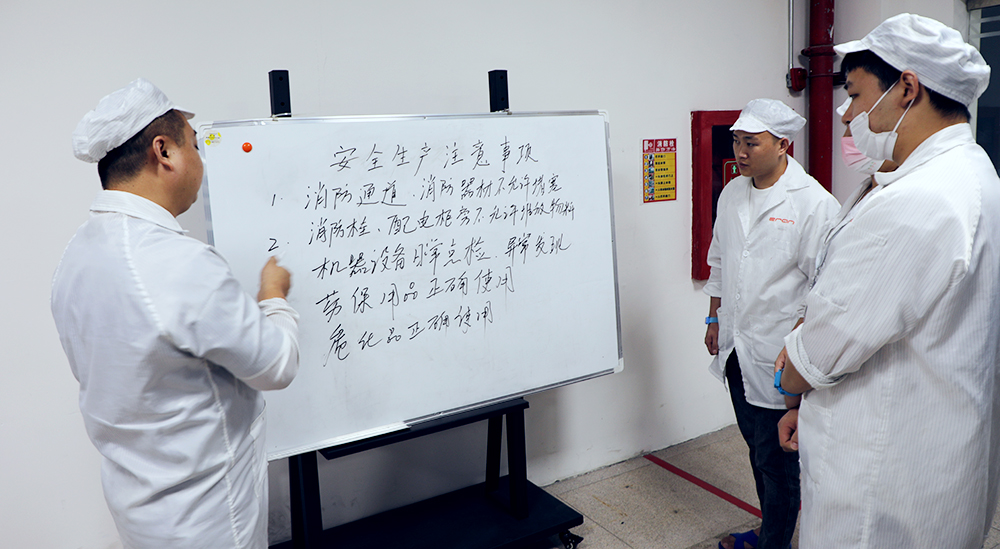 安全生产注意事项
1. 消防通道 消防器材不允许堵塞
2. 消防栓、配电柜旁不允许堆放物料
机器设备日常点检、异常发现
劳保用品正确使用
危化品正确使用
消防栓